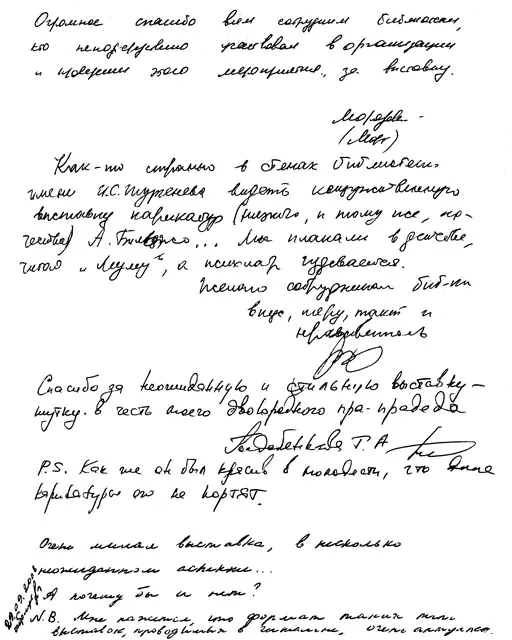 Огромное спасибо всем сотрудникам библиотеки,
кто непосредственно участвовал в организации
и проведении этого мероприятия, за выставку.
Морозова
Как-то странно в стенах библиотеки
имени И.С. Тургенева видеть
выставку карикатур (низкого, к тому же, ка-
чества) А. Бильжо... Мы плакали в детстве,
читая "Муму", а психиатр
Желаю сотрудникам биб-ки
вкус, меру, такт и
нравственность
Спасибо за неожиданную и стильную выставку-
шутку в честь моего двоюродного пра-прадеда
Т. А
P.S. Как же он был красив в молодости, что даже
карикатуры его не портят.
Очень милая выставка, в несколько
неожиданном аспекте...
А почему бы и нет?
N.B. Мне кажется, что формат таких
выставок, проводимых в читальне, очень актуален.